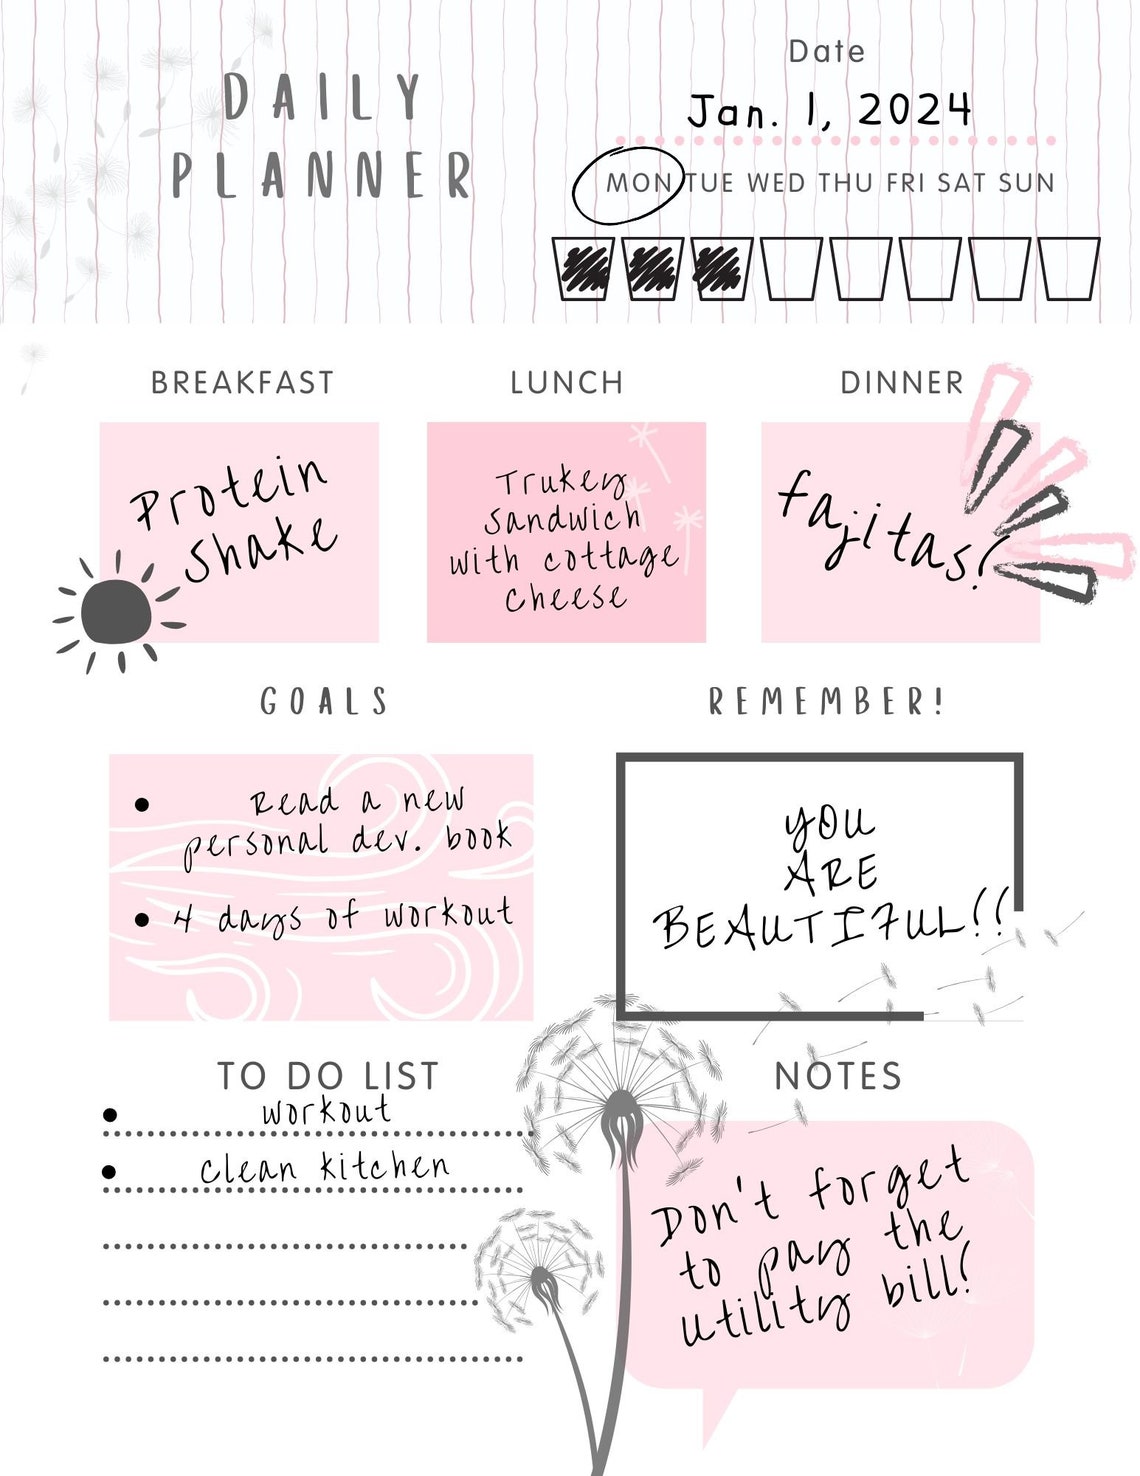 DAILY
PLANNER
Date
Jan. 1, 2024
MON TUE WED THU FRI SAT SUN
BREAKFAST
LUNCH
DINNER
Protein
Shake
Trukey
Sandwich
with cottage
cheese
fajitas!
GOALS
REMEMBER!
• Read a new
personal dev. book
• 4 days of workout
YOU
ARE
BEAUTIFUL!!
TO DO LIST
• workout
• clean kitchen
NOTES
Don't forget
to pay the
utility bill!